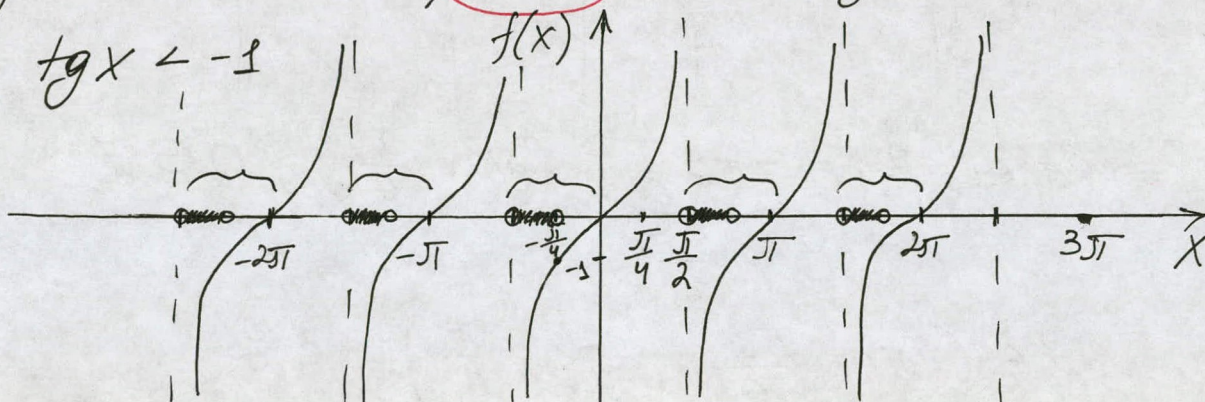 tg x < -1
f(x)
-2π
-π
-π/4
-1
π/4
π/2
π
2π
3π
x